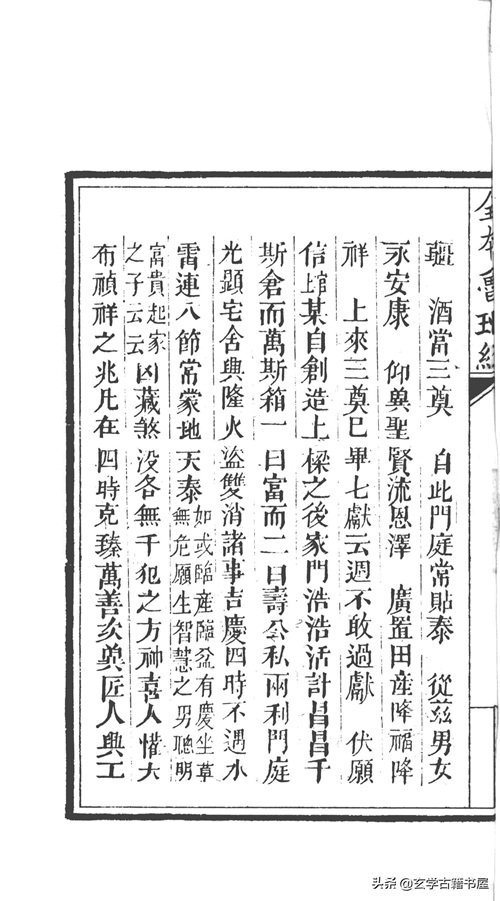 全本魯班經
疆　酒當三奠　自此門庭常貼泰　從茲男女
永安康　仰冀聖賢流恩澤　廣置田産降福降
祥　上來三奠已畢七獻云週不敢過獻　伏願
信士官某自創造上樑之後家門浩浩活計昌昌千
斯倉而萬斯箱一曰富而二曰壽公私兩利門庭
光顯宅舍興隆火盜雙消諸事吉慶四時不遇水
雷連八節常蒙地天泰如或臨産臨盆有慶坐草無危願生智慧之男聰明
富貴起家之子云云凶藏煞没各無干犯之方神喜人懽大
布禎祥之兆凡在四時克臻萬善次冀匠人興工
头条@玄学古籍书屋